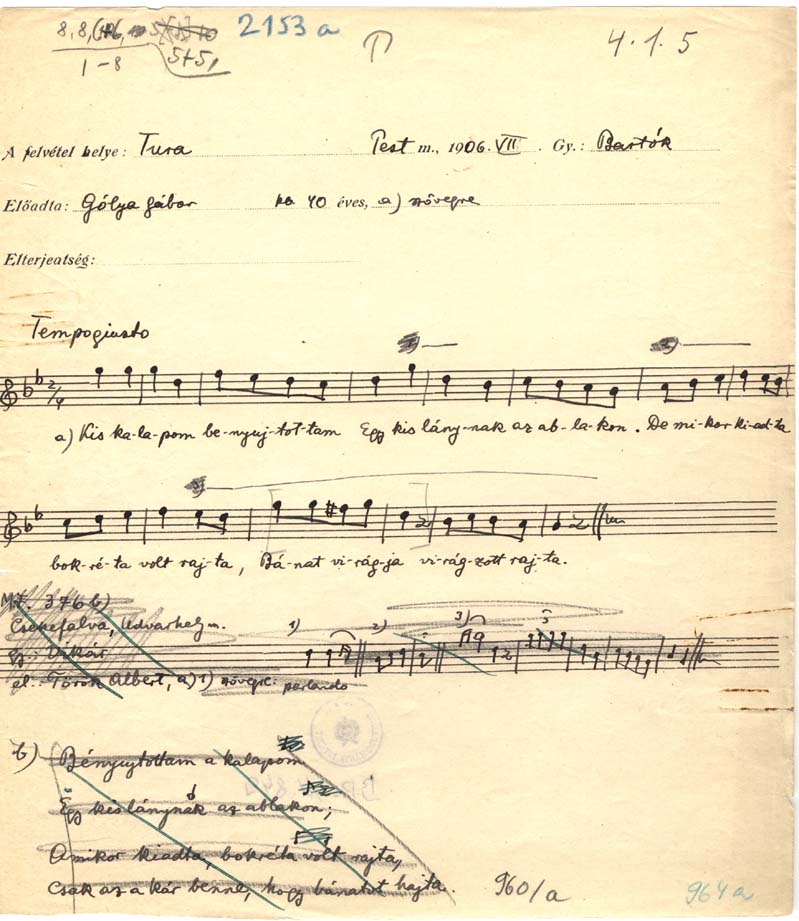 2153 a
4.1.5
1-8
5+5,
A felvétel helye: Tura Pest m., 1906. VII. Gy.: Bartók
Előadta: Gólya Gábor ka 40 éves, a) szövegre
Elterjeatség:
Tempo giusto
2/4
a) Kis ka-la-pom be-nyuj-tot-tam Egy kis lány-nak az ab-la-kon. De mi-kor ki-ad-ta
bok-ré-ta volt raj-ta, Bá-nat vi-rág-ja virág-zott raj-ta.
M.F. 376 b)
Csekefalva, Udvarhely m.
gy.: Vikár
el.: Török Albert, a) 1) szövegre: parlando
1) 2) 3)
b) Bényujtottam a kalapom
Egy kis lánynak az ablakon;
Amikor kiadta, bokréta volt rajta,
Csak az a kár benne, hogy bánatot hajta.
960/a
964 a